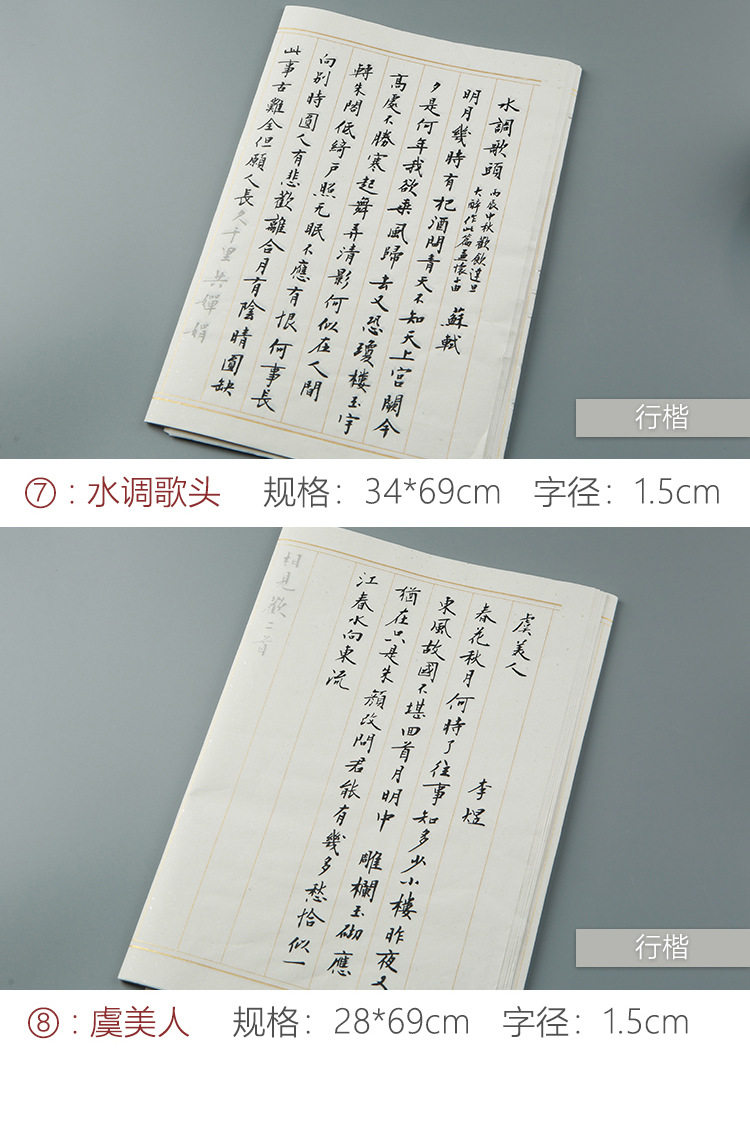 水調歌頭 丙辰中秋歡飲達旦
大醉作此篇兼懷子由 蘇軾
明月幾時有把酒問青天不知天上宮闕今
夕是何年我欲乘風歸去又恐瓊樓玉宇
高處不勝寒起舞弄清影何似在人間
轉朱閣低綺戶照无眠不應有恨何事長
向別時圓人有悲歡離合月有陰晴圓缺
此事古難全但願人長久千里共嬋娟
行楷
⑦:水调歌头 规格:34*69cm 字径:1.5cm
虞美人 李煜
春花秋月何時了往事知多少小樓昨夜又
東風故國不堪回首月明中 雕欄玉砌應
猶在只是朱顏改問君能有幾多愁恰似一
江春水向東流
相見歡二首
行楷
⑧:虞美人 规格:28*69cm 字径:1.5cm